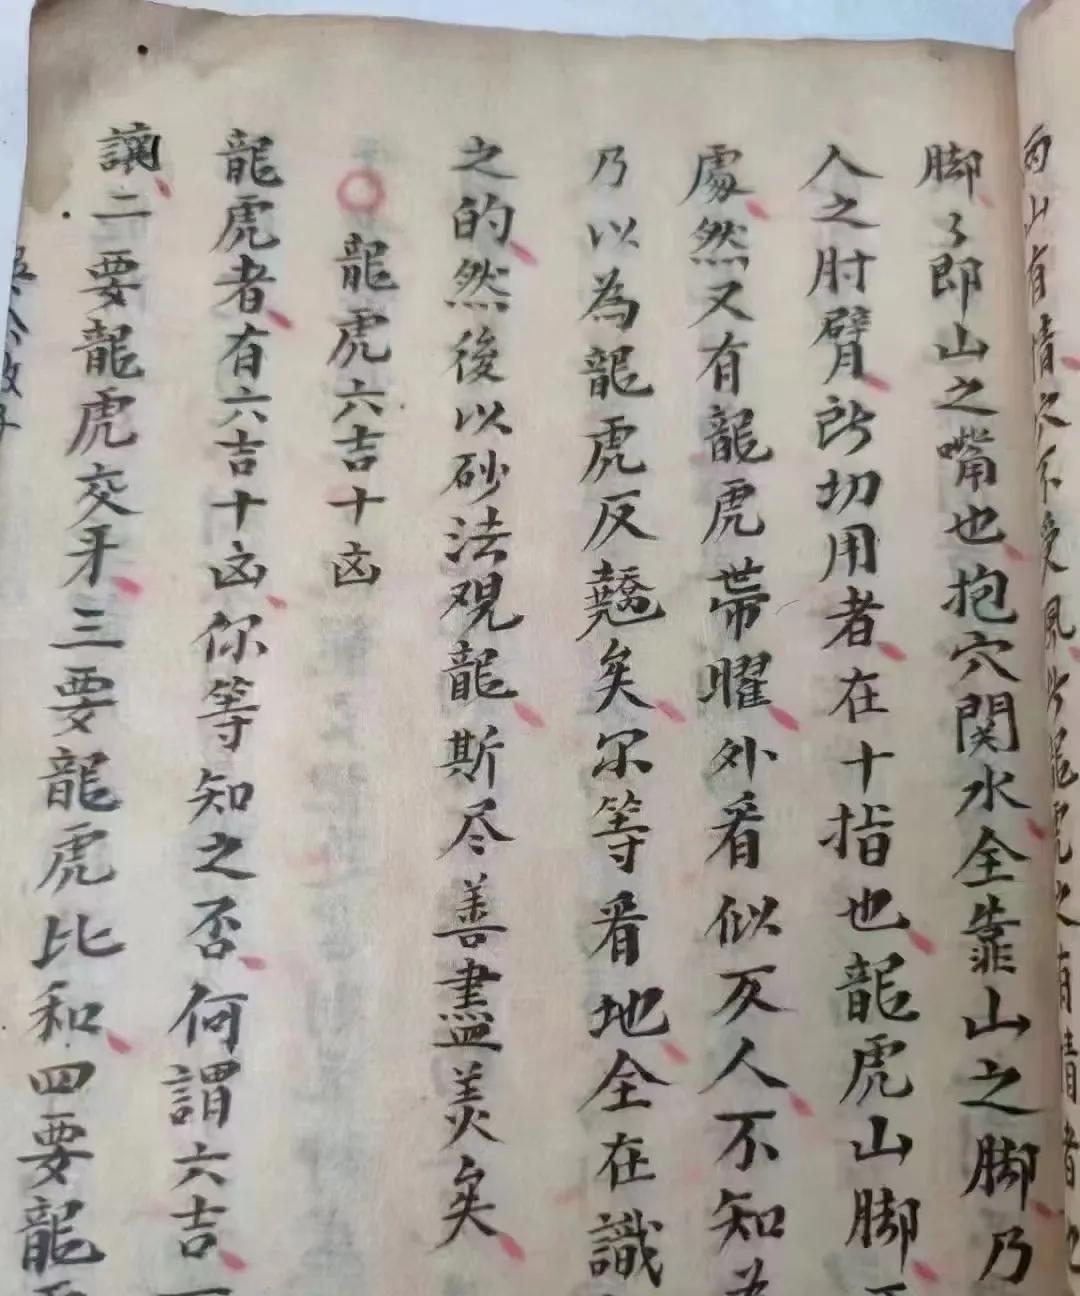 两山有情穴不受風此龍虎之有情者也
脚々即山之嘴也抱穴関水全靠山之脚乃
人之肘臂所切用者在十指也龍虎山脚
處然又有龍虎帯曜外看似反人不知
乃以為龍虎反趫矣尔等看地全在識
之的然後以砂法观龍斯尽善盡美矣
龍虎六吉十凶
龍虎者有六吉十凶你等知之否何謂六吉一
讓二要龍虎交牙三要龍虎比和四要龍